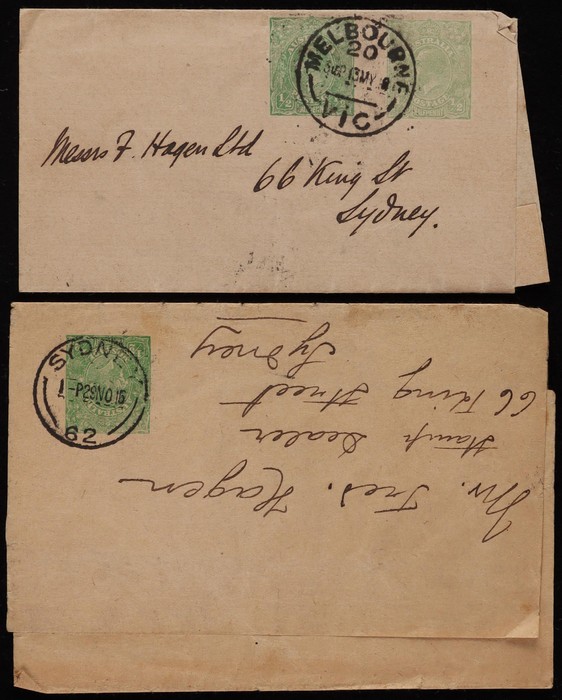 MELBOURNE
20
13MY
VIC
AUSTRALIA
½
½
Messrs F. Hagen Ltd
66 King St
Sydney.
SYDNEY
P29NO16
62
Mr. Fred. Hagen
Stamp Dealer
66 King Street
Sydney